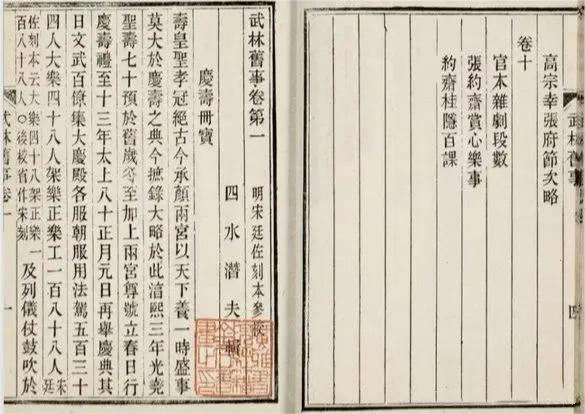 高宗幸張府節次略
卷十
官本雜劇段數
張約齋賞心樂事
約齋桂隱百課
武林舊事
四
武林舊事卷第一 明宋廷佐刻本參校
四水潛夫輯
慶壽冊寶
壽皇聖孝冠絕古今承顏兩宮以天下養一時盛事
莫大於慶壽之典今摭錄大略於此湻熙三年光堯
聖壽七十預於舊歲冬至加上兩宮尊號立春日行
慶壽禮至十三年太上八十正月元日再舉慶典其
日文武百僚集大慶殿各服朝服用法駕五百三十
四人大樂四十八人架樂正樂工一百八十八人宋廷
佐刻本云大樂四十八架正樂一百八十八人○後校省作宋刻及列儀仗鼓吹於
武林舊事卷一
一